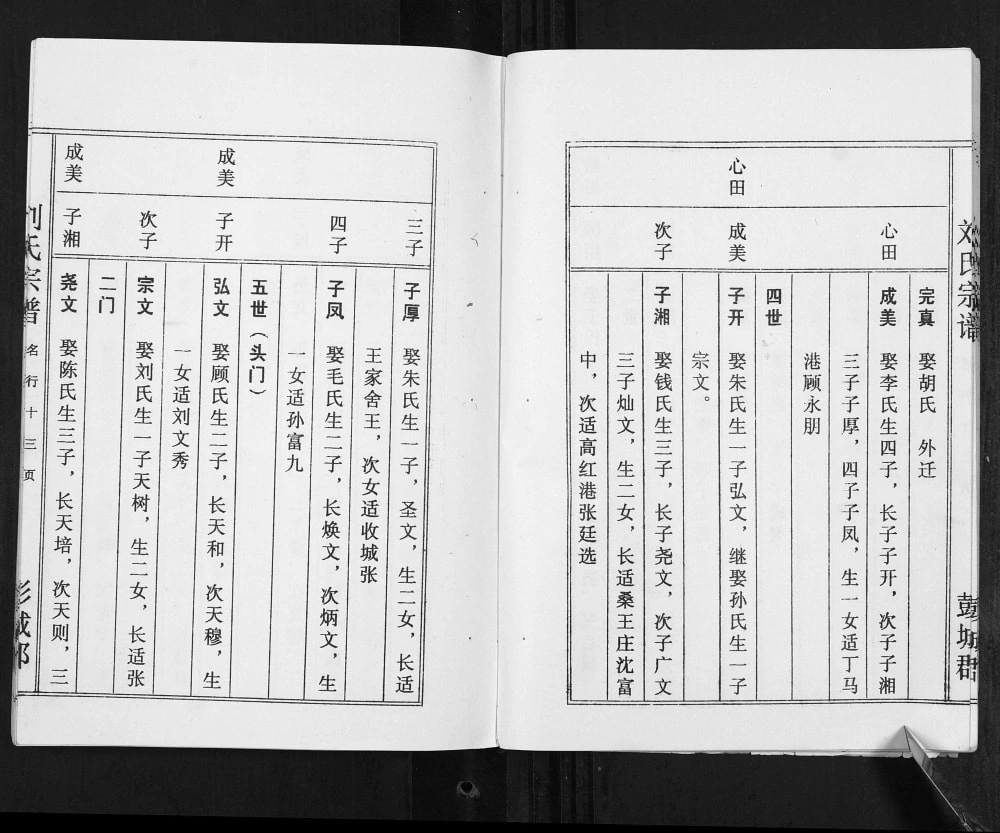 刘氏宗谱
彭城郡
完真 娶胡氏 外迁
心田
成美 娶李氏生四子，长子子开，次子子湘
三子子厚，四子子凤，生一女适丁马
港顾永朋
四世
心田
成美
子开 娶朱氏生一子弘文，继娶孙氏生一子
宗文。
次子
子湘 娶钱氏生三子，长子尧文，次子广文
三子灿文，生二女，长适桑王庄沈富
中，次适高红港张廷选
三子
子厚 娶朱氏生一子，圣文，生二女，长适
王家舍王，次女适收城张
四子
子凤 娶毛氏生二子，长焕文，次炳文，生
一女适孙富九
五世（头门）
成美
子开
弘文 娶顾氏生二子，长天和，次天穆，生
一女适刘文秀
次子
宗文 娶刘氏生一子天树，生二女，长适张
二门
成美
子湘
尧文 娶陈氏生三子，长天培，次天则，三
刘氏宗谱
名行十三页
彭城郡